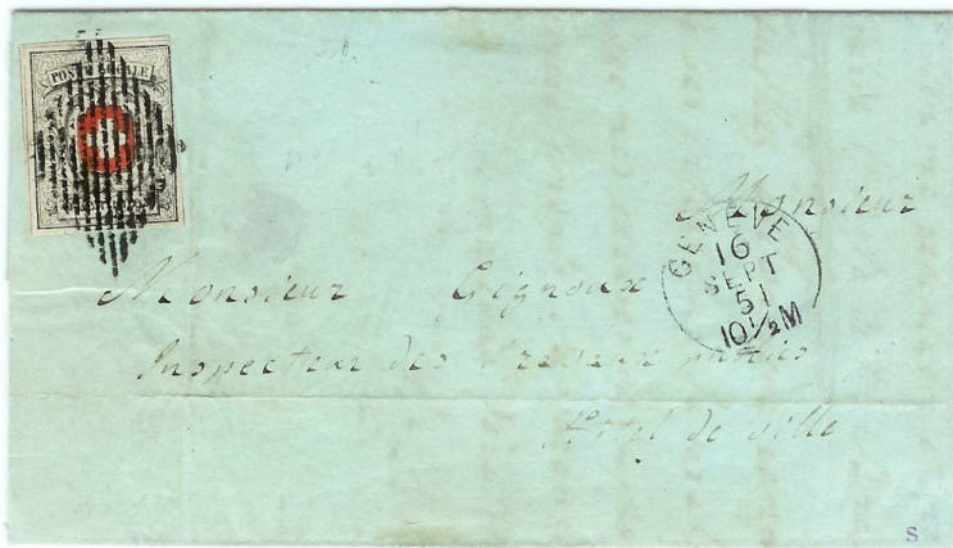 POSTE LOCALE
Monsieur
GENÈVE
16
SEPT
51
10½M
Monsieur Gignoux
Inspecteur des Travaux publics
Hotel de ville
S